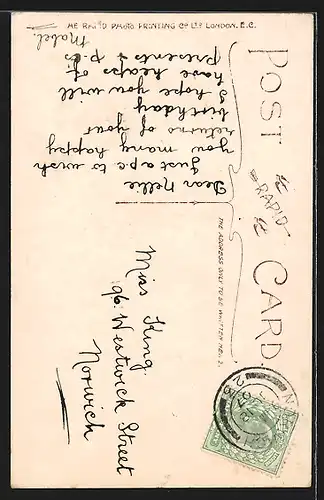 THE RAPID PHOTO PRINTING Co LTD LONDON. E.C.
POST CARD.
RAPID
THE ADDRESS ONLY TO BE WRITTEN HERE.
Dear Nellie
Just a p.c. to wish
you many happy
returns of your
birthday
I hope you will
have heaps of
presents & p.cs
Mabel.
Miss King.
96. Westwick Street
Norwich